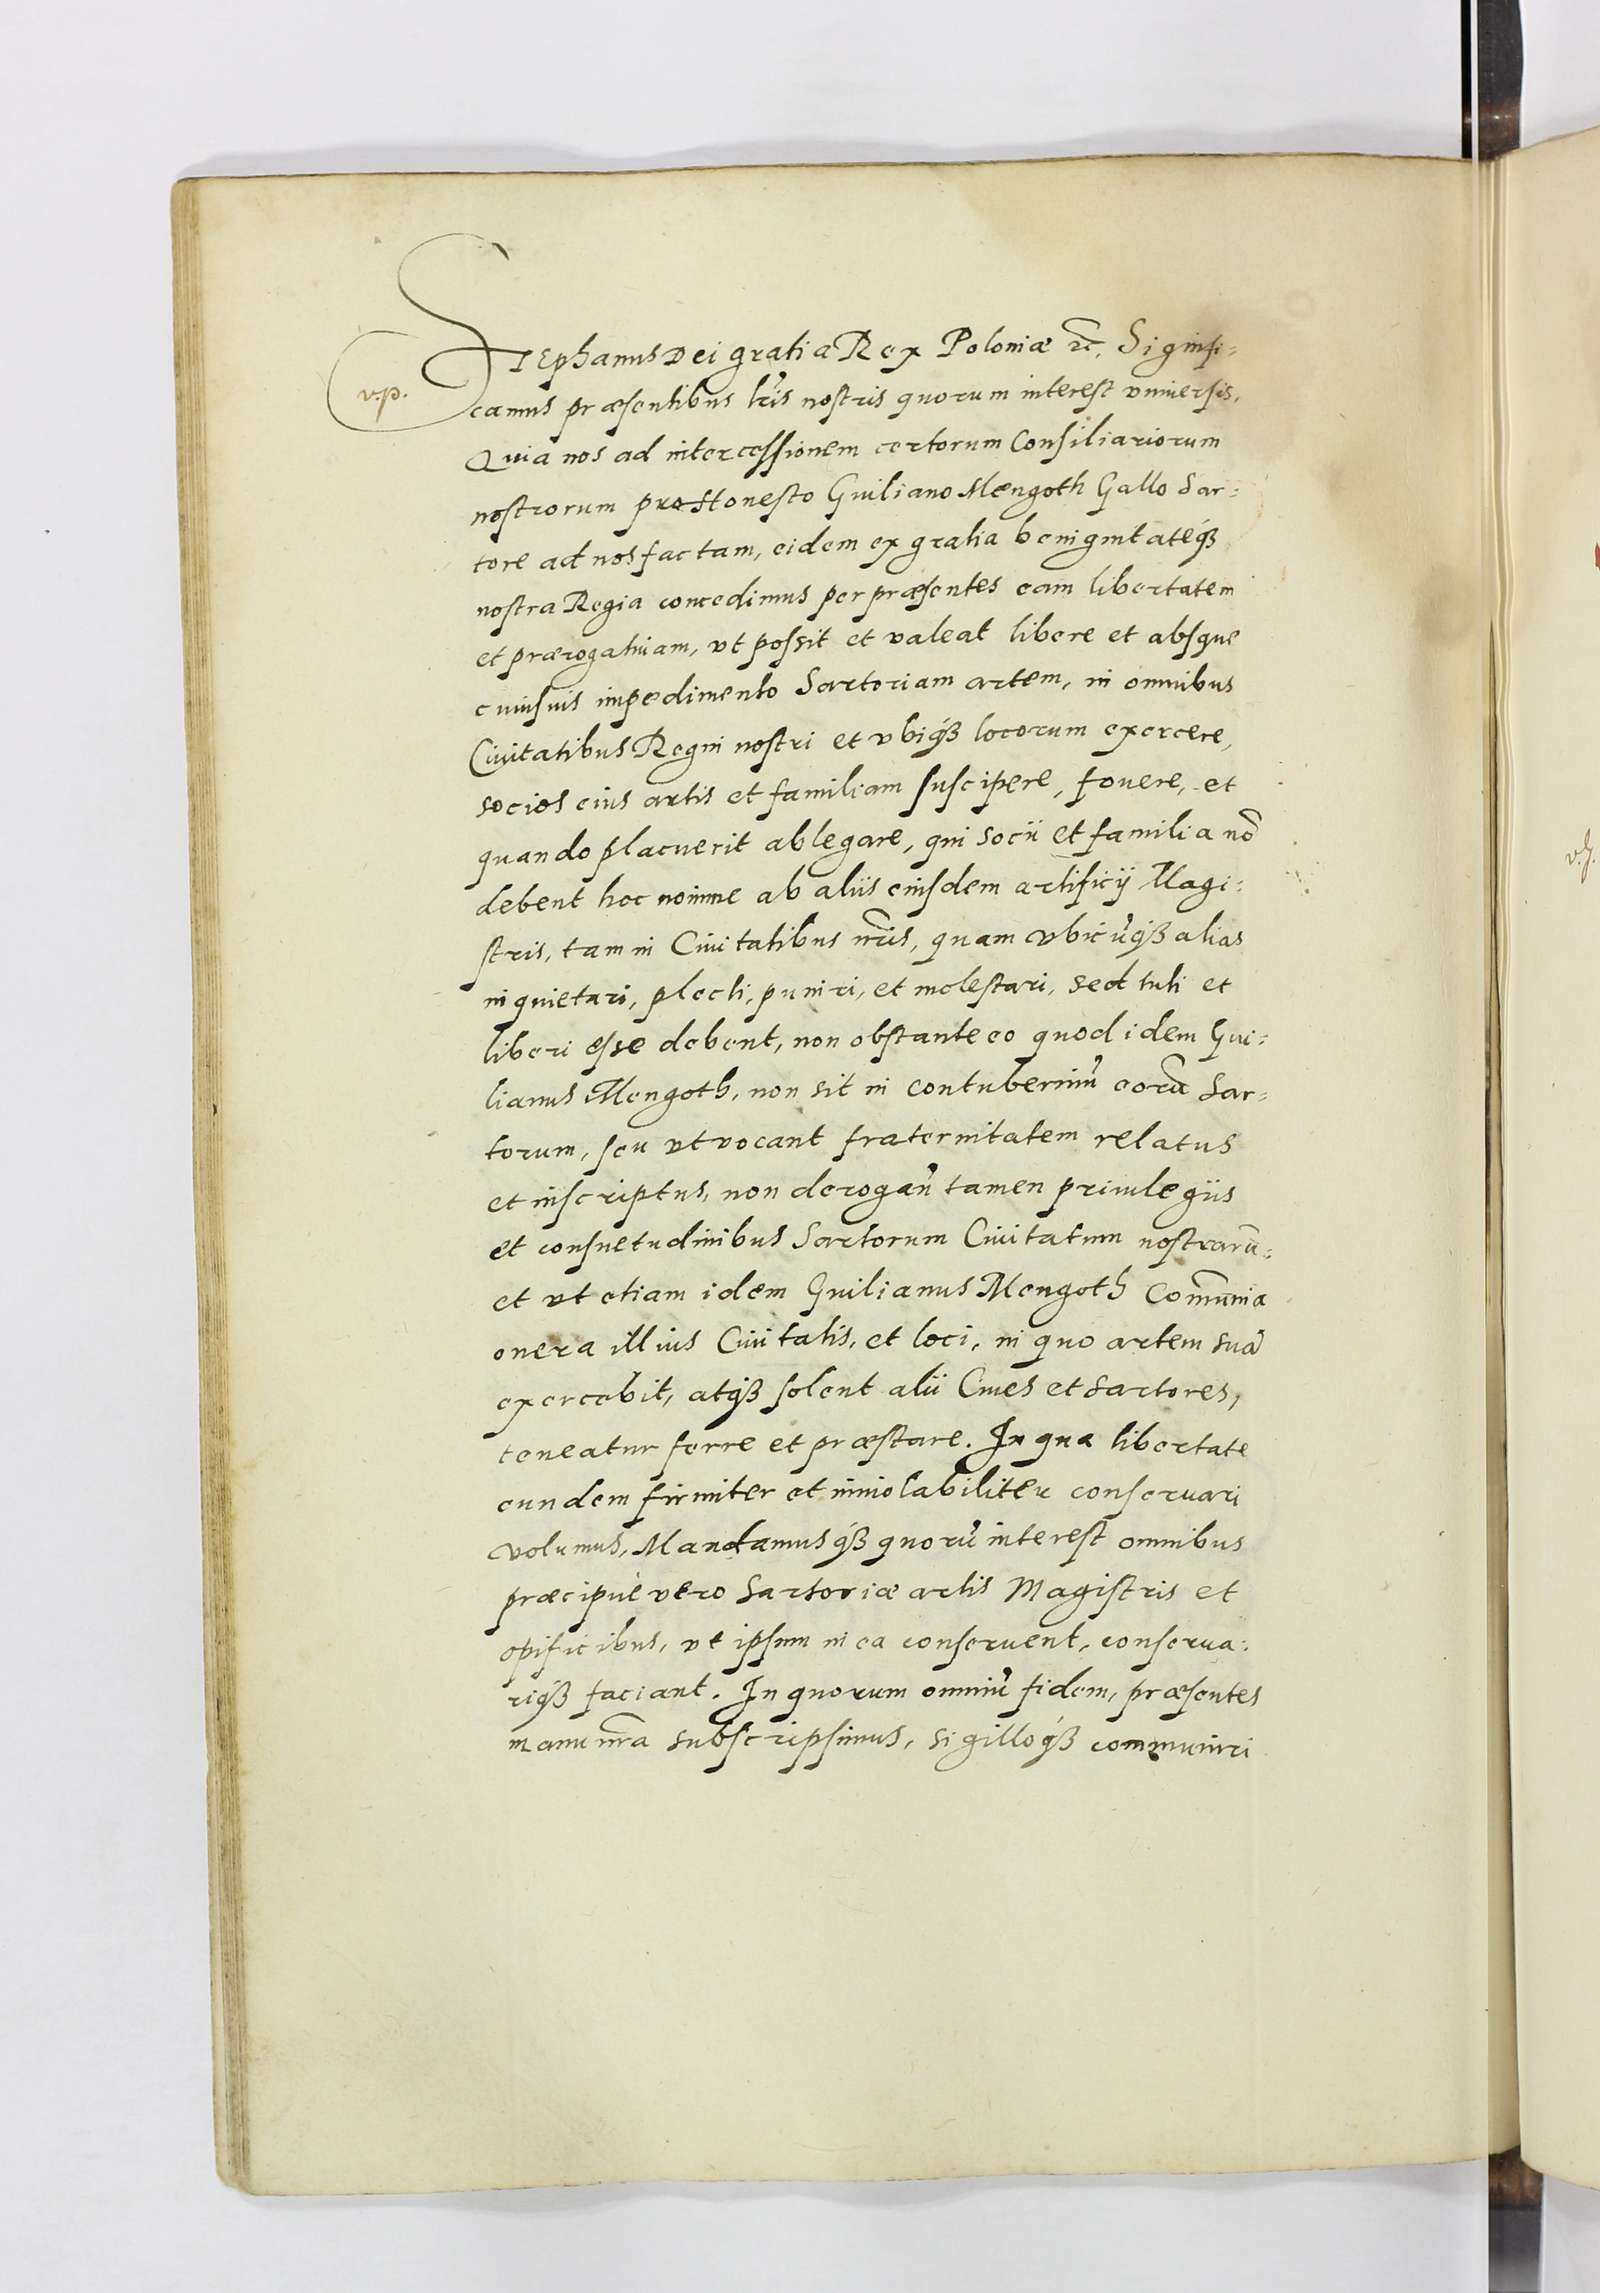 STEphanus Dei gratia Rex Poloniæ etc. Signifi-
v.p.
camus præsentibus lr̃is nostris quorum interest vniuersis.
Quia nos ad intercessionem certorum Consiliariorum
nostrorum pro Honesto Guiliano Mengoth Gallo Sar-
tore ad nos factam, eidem ex gratia benignitateq́ꝫ
nostra Regia concedimus per præsentes eam libertatem
et prærogatiuam, vt possit et valeat libere et absque
cuiusuis impedimento Sartoriam artem, in omnibus
Ciuitatibus Regni nostri et vbiq́ꝫ locorum exercere,
socios eius artis et familiam suscipere, fouere, et
quando placuerit ablegare, qui socii et familia nõ
debent hoc nomine ab aliis eiusdem artificij Magi-
stris, tam in Ciuitatibus nr̃is, quam vbicũq́ꝫ alias
inquietari, plecti, puniri, et molestari, sed tuti et
liberi esse debent, non obstante eo quod idem Gui-
lianus Mengoth, non sit in contuberniũ eorũ Sar-
torum, seu vt vocant fraternitatem relatus
et inscriptus, non derogañ tamen priuilegiis
et consuetudinibus Sartorum Ciuitatum nostrarũ.
et vt etiam idem Guilianus Mengoth Com̃unia
onera illius Ciuitatis, et loci, in quo artem suã
exercebit, atq́ꝫ solent alii Ciues et Sartores,
teneatur ferre et præstare. In qua libertate
eundem firmiter et inuiolabiliter conseruari
volumus, Mandamusq́ꝫ quorũ interest omnibus
præcipuè vero Sartoriæ artis Magistris et
opificibus, vt ipsum in ea conseruent, conserua-
riq́ꝫ faciant. In quorum omniũ fidem, præsentes
manu nr̃a subscripsimus, sigilloq́ꝫ communiri